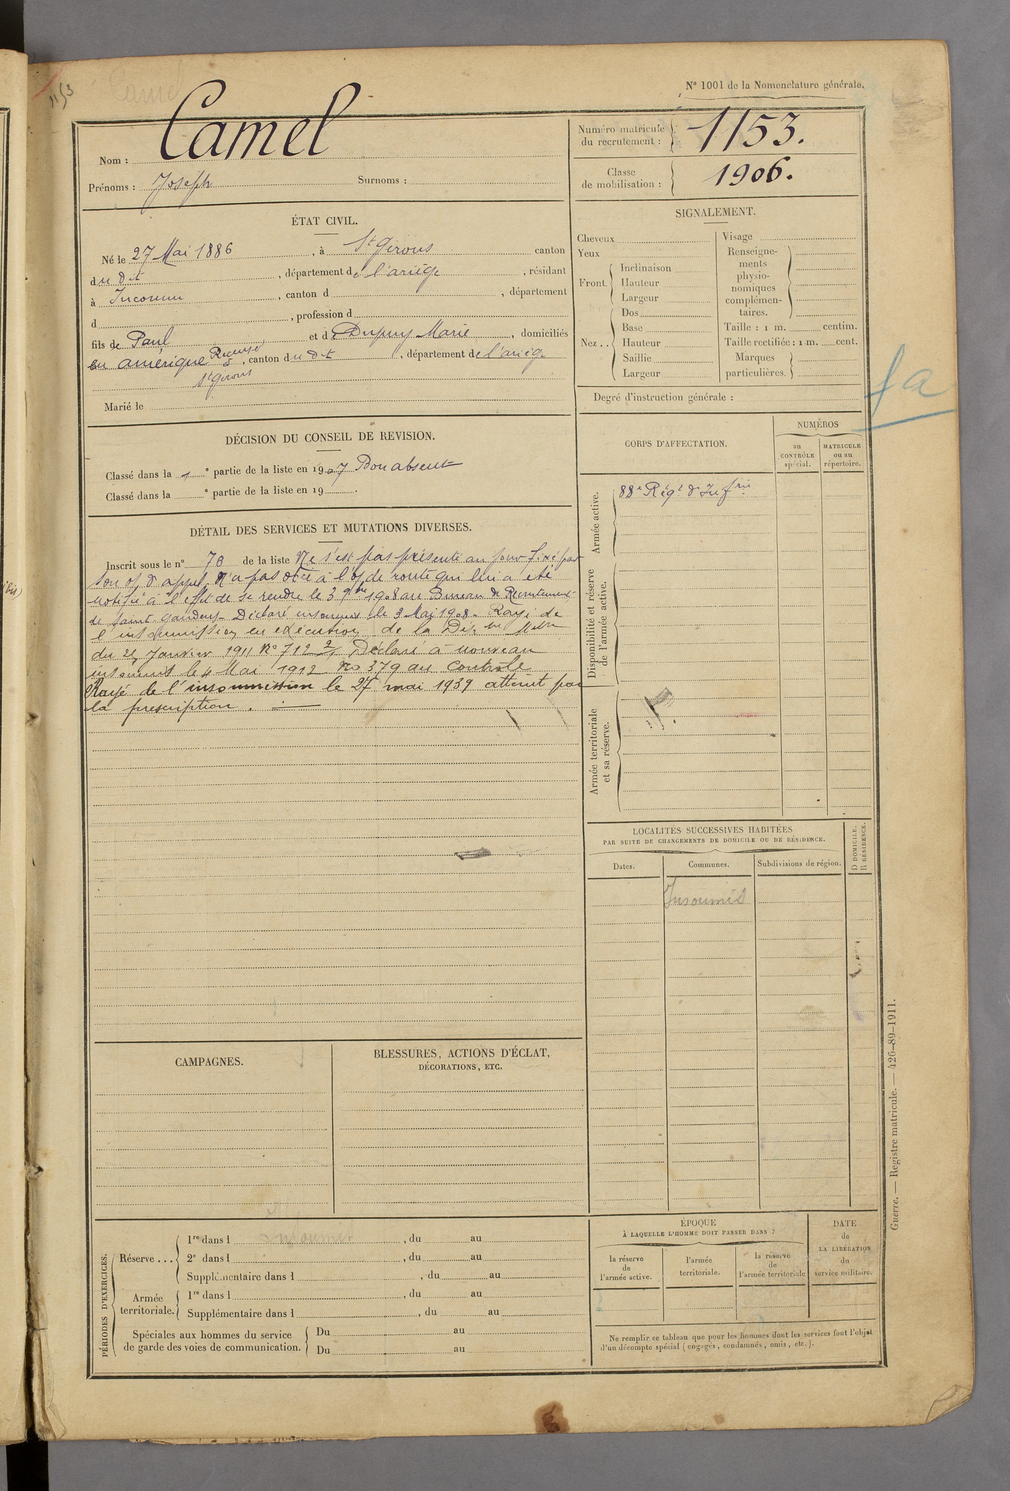 1153
Camel
N° 1001 de la Nomenclature générale.
Nom : Camel
Prénoms : Joseph Surnoms :
Numéro matricule du recrutement : 1153.
Classe de mobilisation : 1906.
ÉTAT CIVIL.
Né le 27 Mai 1886, à St Girons canton
du dt, département de l'ariège, résidant
à Inconnu, canton d , département
d , profession d
fils de Paul et de Dupuy Marie, domiciliés
en amérique, canton du dt, département de l'ariège
St Girons
Marié le
SIGNALEMENT.
Cheveux
Yeux
Front. Inclinaison
Hauteur
Largeur
Nez . . Dos
Base
Hauteur
Saillie
Largeur
Visage
Renseignements physionomiques complémentaires.
Taille : 1 m. centim.
Taille rectifiée : 1 m. cent.
Marques particulières.
Degré d'instruction générale :
fa
DÉCISION DU CONSEIL DE REVISION.
Classé dans la 1e partie de la liste en 1907 Bon absent
Classé dans la e partie de la liste en 19 .
CORPS D'AFFECTATION.
NUMÉROS
au CONTRÔLE spécial.
MATRICULE ou au répertoire.
Armée active.
88e Régt d'Infrie
Disponibilité et réserve de l'armée active.
Armée territoriale et sa réserve.
DÉTAIL DES SERVICES ET MUTATIONS DIVERSES.
Inscrit sous le n° 78 de la liste Ne s'est pas présenté au jour fixé par
son of d'appel. N'a pas obéi à l'of de route qui lui a été
notifié à l'effet de se rendre le 3 1908 au Bureau de Recrutement
de Saint Gaudens. Déclaré insoumis le 3 Mai 1908. Rayé de
l'insoumission en exécution de la Dis. Mlle
du 25 Janvier 1911 No 712 2/1 Déclaré à nouveau
insoumis le 4 Mai 1912 No 379 du Contrôle
Rayé de l'insoumission le 27 mai 1939 atteint par
la prescription.
LOCALITÉS SUCCESSIVES HABITÉES
PAR SUITE DE CHANGEMENTS DE DOMICILE OU DE RÉSIDENCE.
Dates. Communes. Subdivisions de région.
D DOMICILE. R RÉSIDENCE.
Insoumis
CAMPAGNES.
BLESSURES, ACTIONS D'ÉCLAT,
DÉCORATIONS, ETC.
PÉRIODES D'EXERCICES.
Réserve . . . 1re dans l Insoumis, du au
2e dans l , du au
Supplémentaire dans l , du au
Armée territoriale. 1re dans l , du au
Supplémentaire dans l , du au
Spéciales aux hommes du service de garde des voies de communication. Du au
Du au
ÉPOQUE
À LAQUELLE L'HOMME DOIT PASSER DANS :
la réserve de l'armée active.
l'armée territoriale.
la réserve de l'armée territoriale
DATE de LA LIBÉRATION du service militaire.
Ne remplir ce tableau que pour les hommes dont les services font l'objet
d'un décompte spécial (engagés, condamnés, omis, etc.).
Guerre. — Registre matricule. — 426-89-1911.